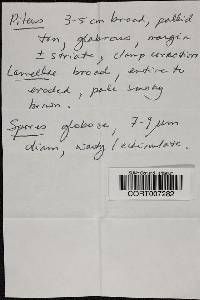 Pileus 3-5 cm broad, pallid
tan, glabrous, margin
± striate, clamp connection
Lamellae broad, entire to
eroded, pale smoky
brown.
Spores globose, 7-9 µm
diam, warty / echinulate.
CORT007282